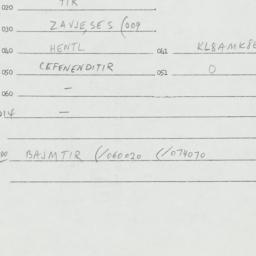 020 TIR
030 ZAVJESES (009
040 HENTL 041 KL8AMK8E
050 CEFENENDITIR 051 0
060 —
014 —
00 BAJMTIR (/060020 (/074070